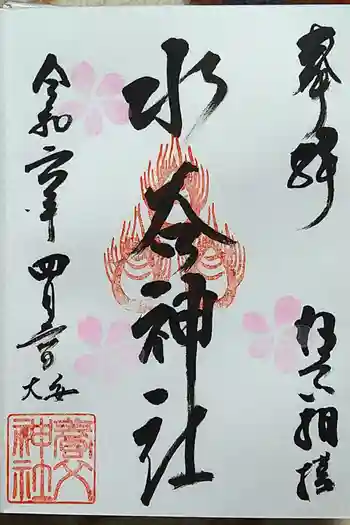 奉拝
相撲
水谷神社
令和六年四月六日
大安
養父神社